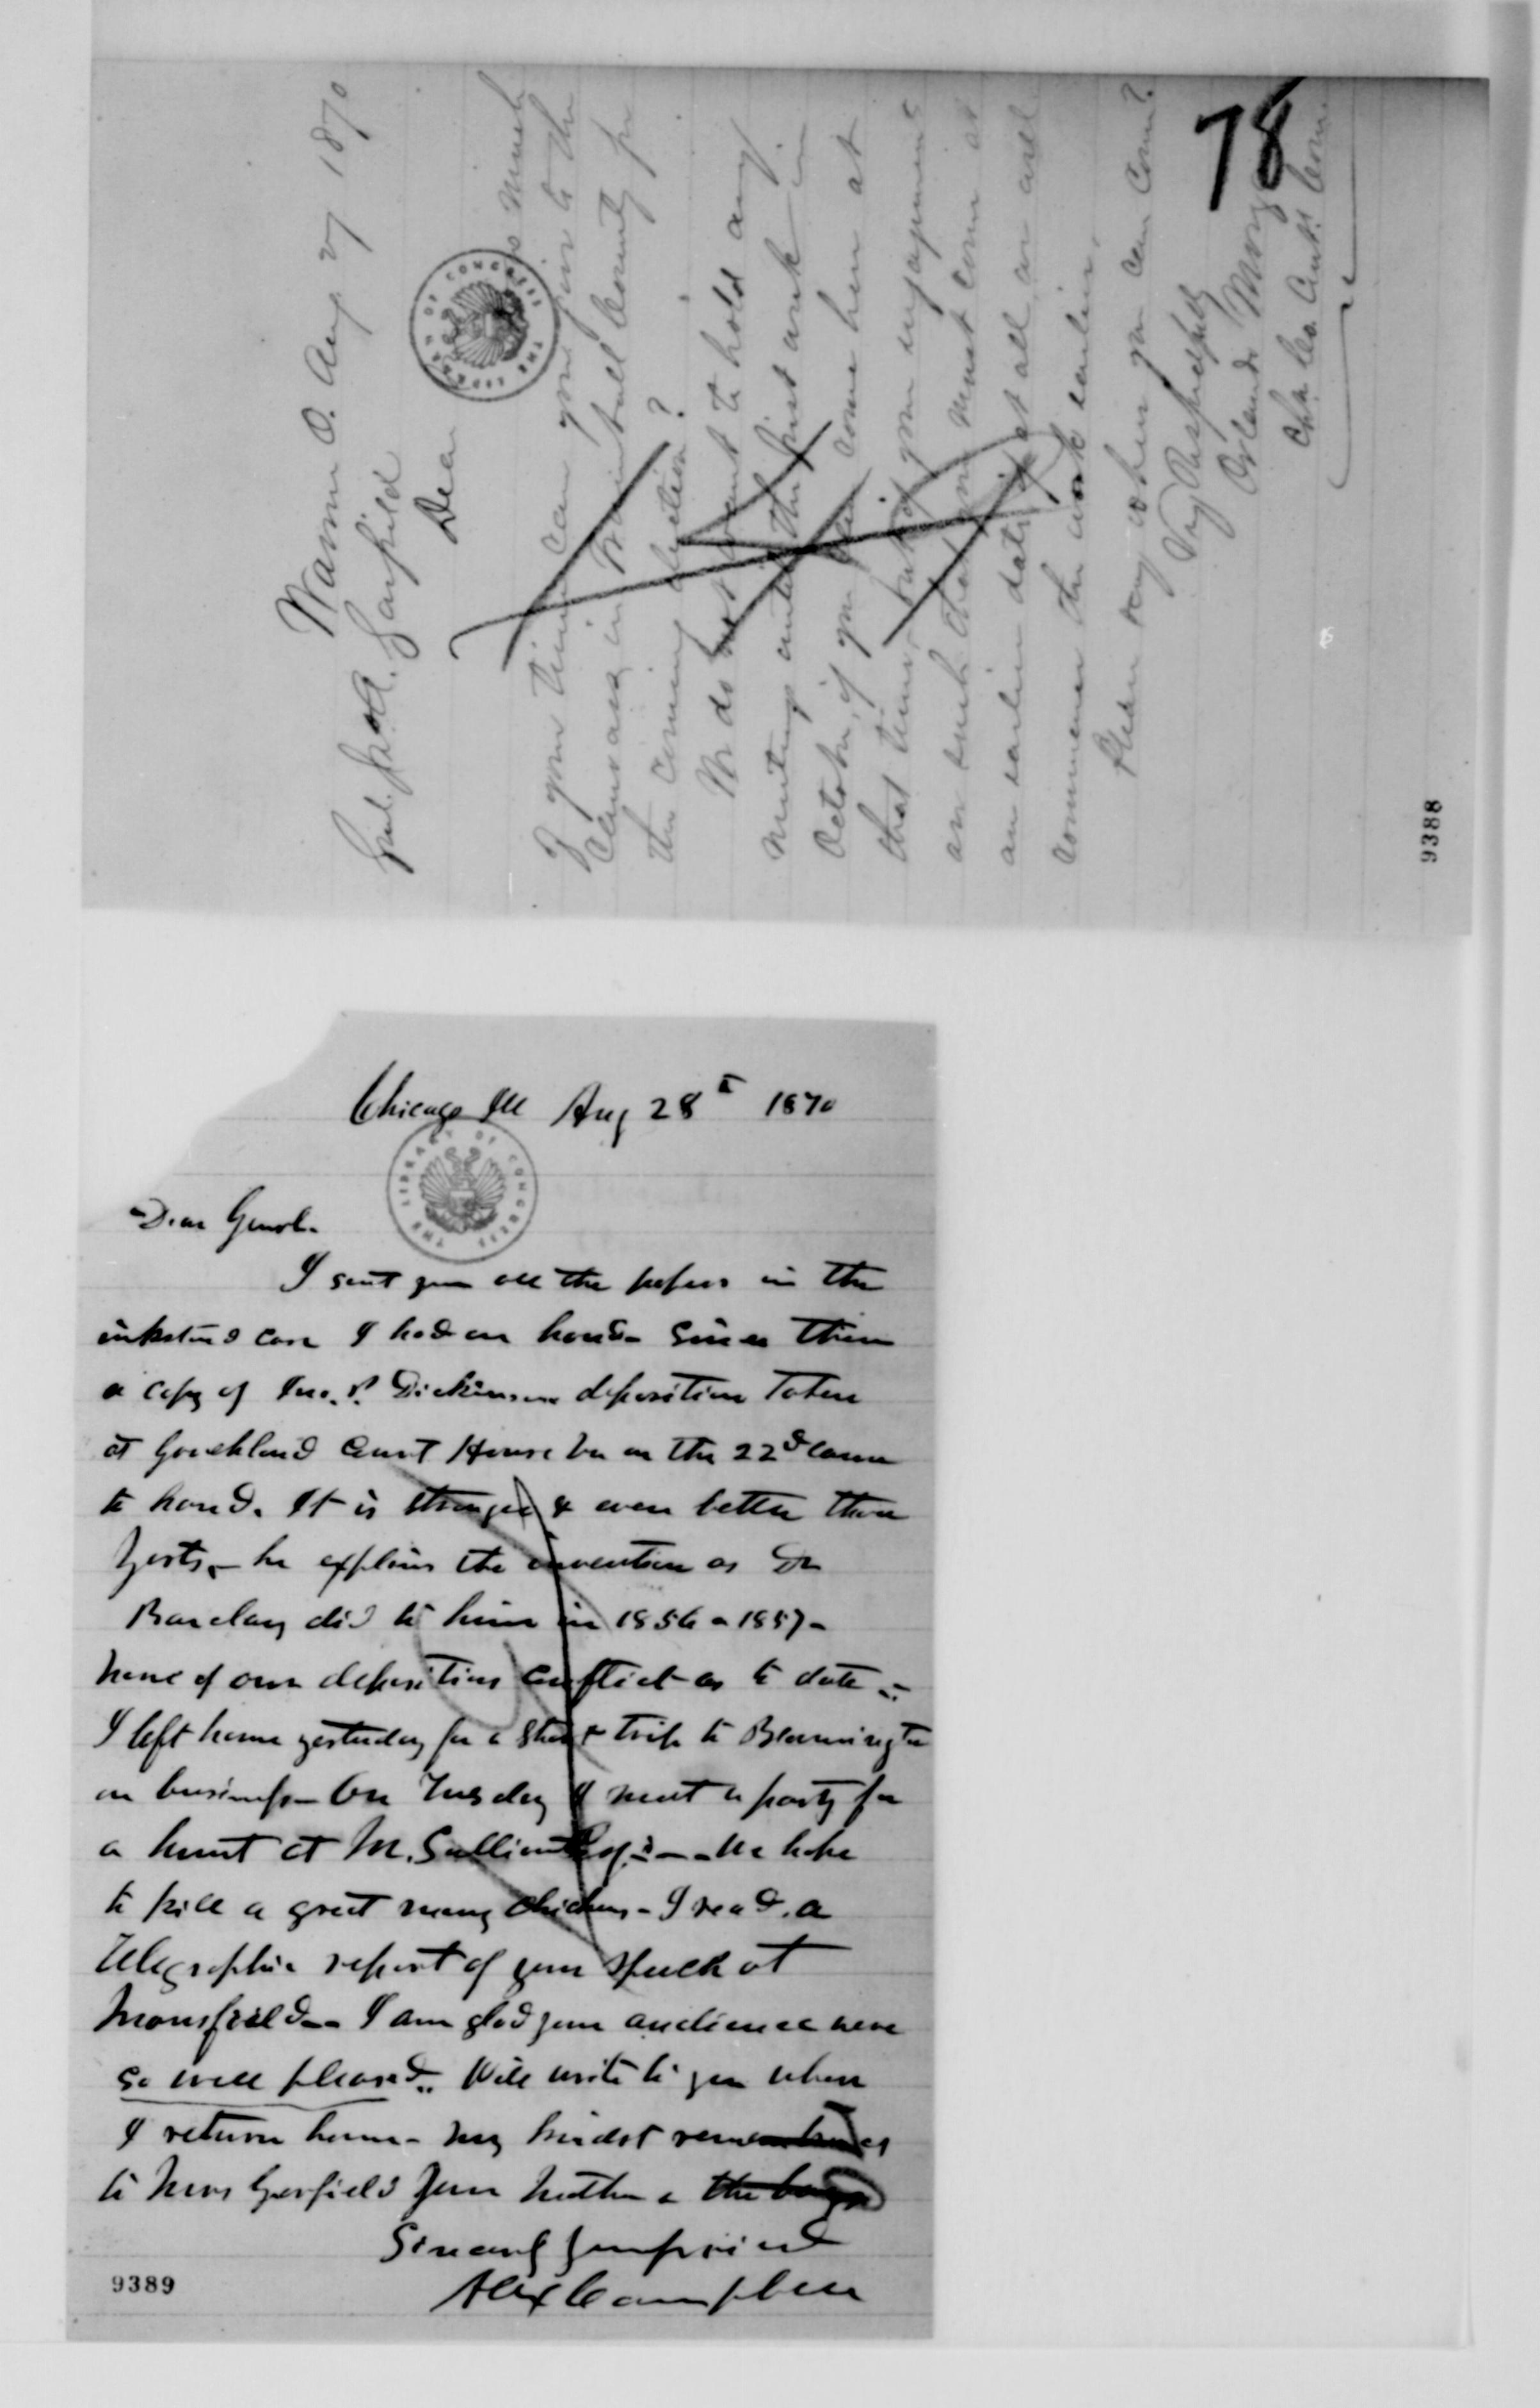 78
Warren O. Aug 27 1870
Genl. Jas A. Garfield
Dear
much
of your time can you give to the
Canvass in Trumbull County for
the coming election?
We do not want to hold any
meetings until the first week in
October, if you can come here at
that time, but if your engagements
are such that you must come at
an earlier date, if at all, we will
commence the work earlier.
Please say when you can come?
Very Respectfully
Orlando Morg
Ch. Co. Cent. Com.
9388
Chicago Ill Aug 28t 1870
THE LIBRARY OF CONGRESS
Dear Genrl.
I sent you all the papers in the
inkstand case I had on hand - Since then
a copy of Dickinson deposition taken
at Goochland Court House Va on the 22d came
to hand. It is stronger & even better than
- he explains the invention as Dr
Barclay did to him in 1856 a 1857 -
None of our depositions conflict as to date -
I left home yesterday for a short trip to Bloomington
on business - On Tuesday I meet a party for
a hunt at M. Sullivant Esq. - We hope
to kill a great many chickens - I read a
Telegraphic report of your speech at
Mansfield - I am glad your audience were
so well pleased. Will write to you when
I return home - My kindest remembrances
to Mrs Garfield your Mother & the boys
Sincerely your friend
Alex Campbell
9389